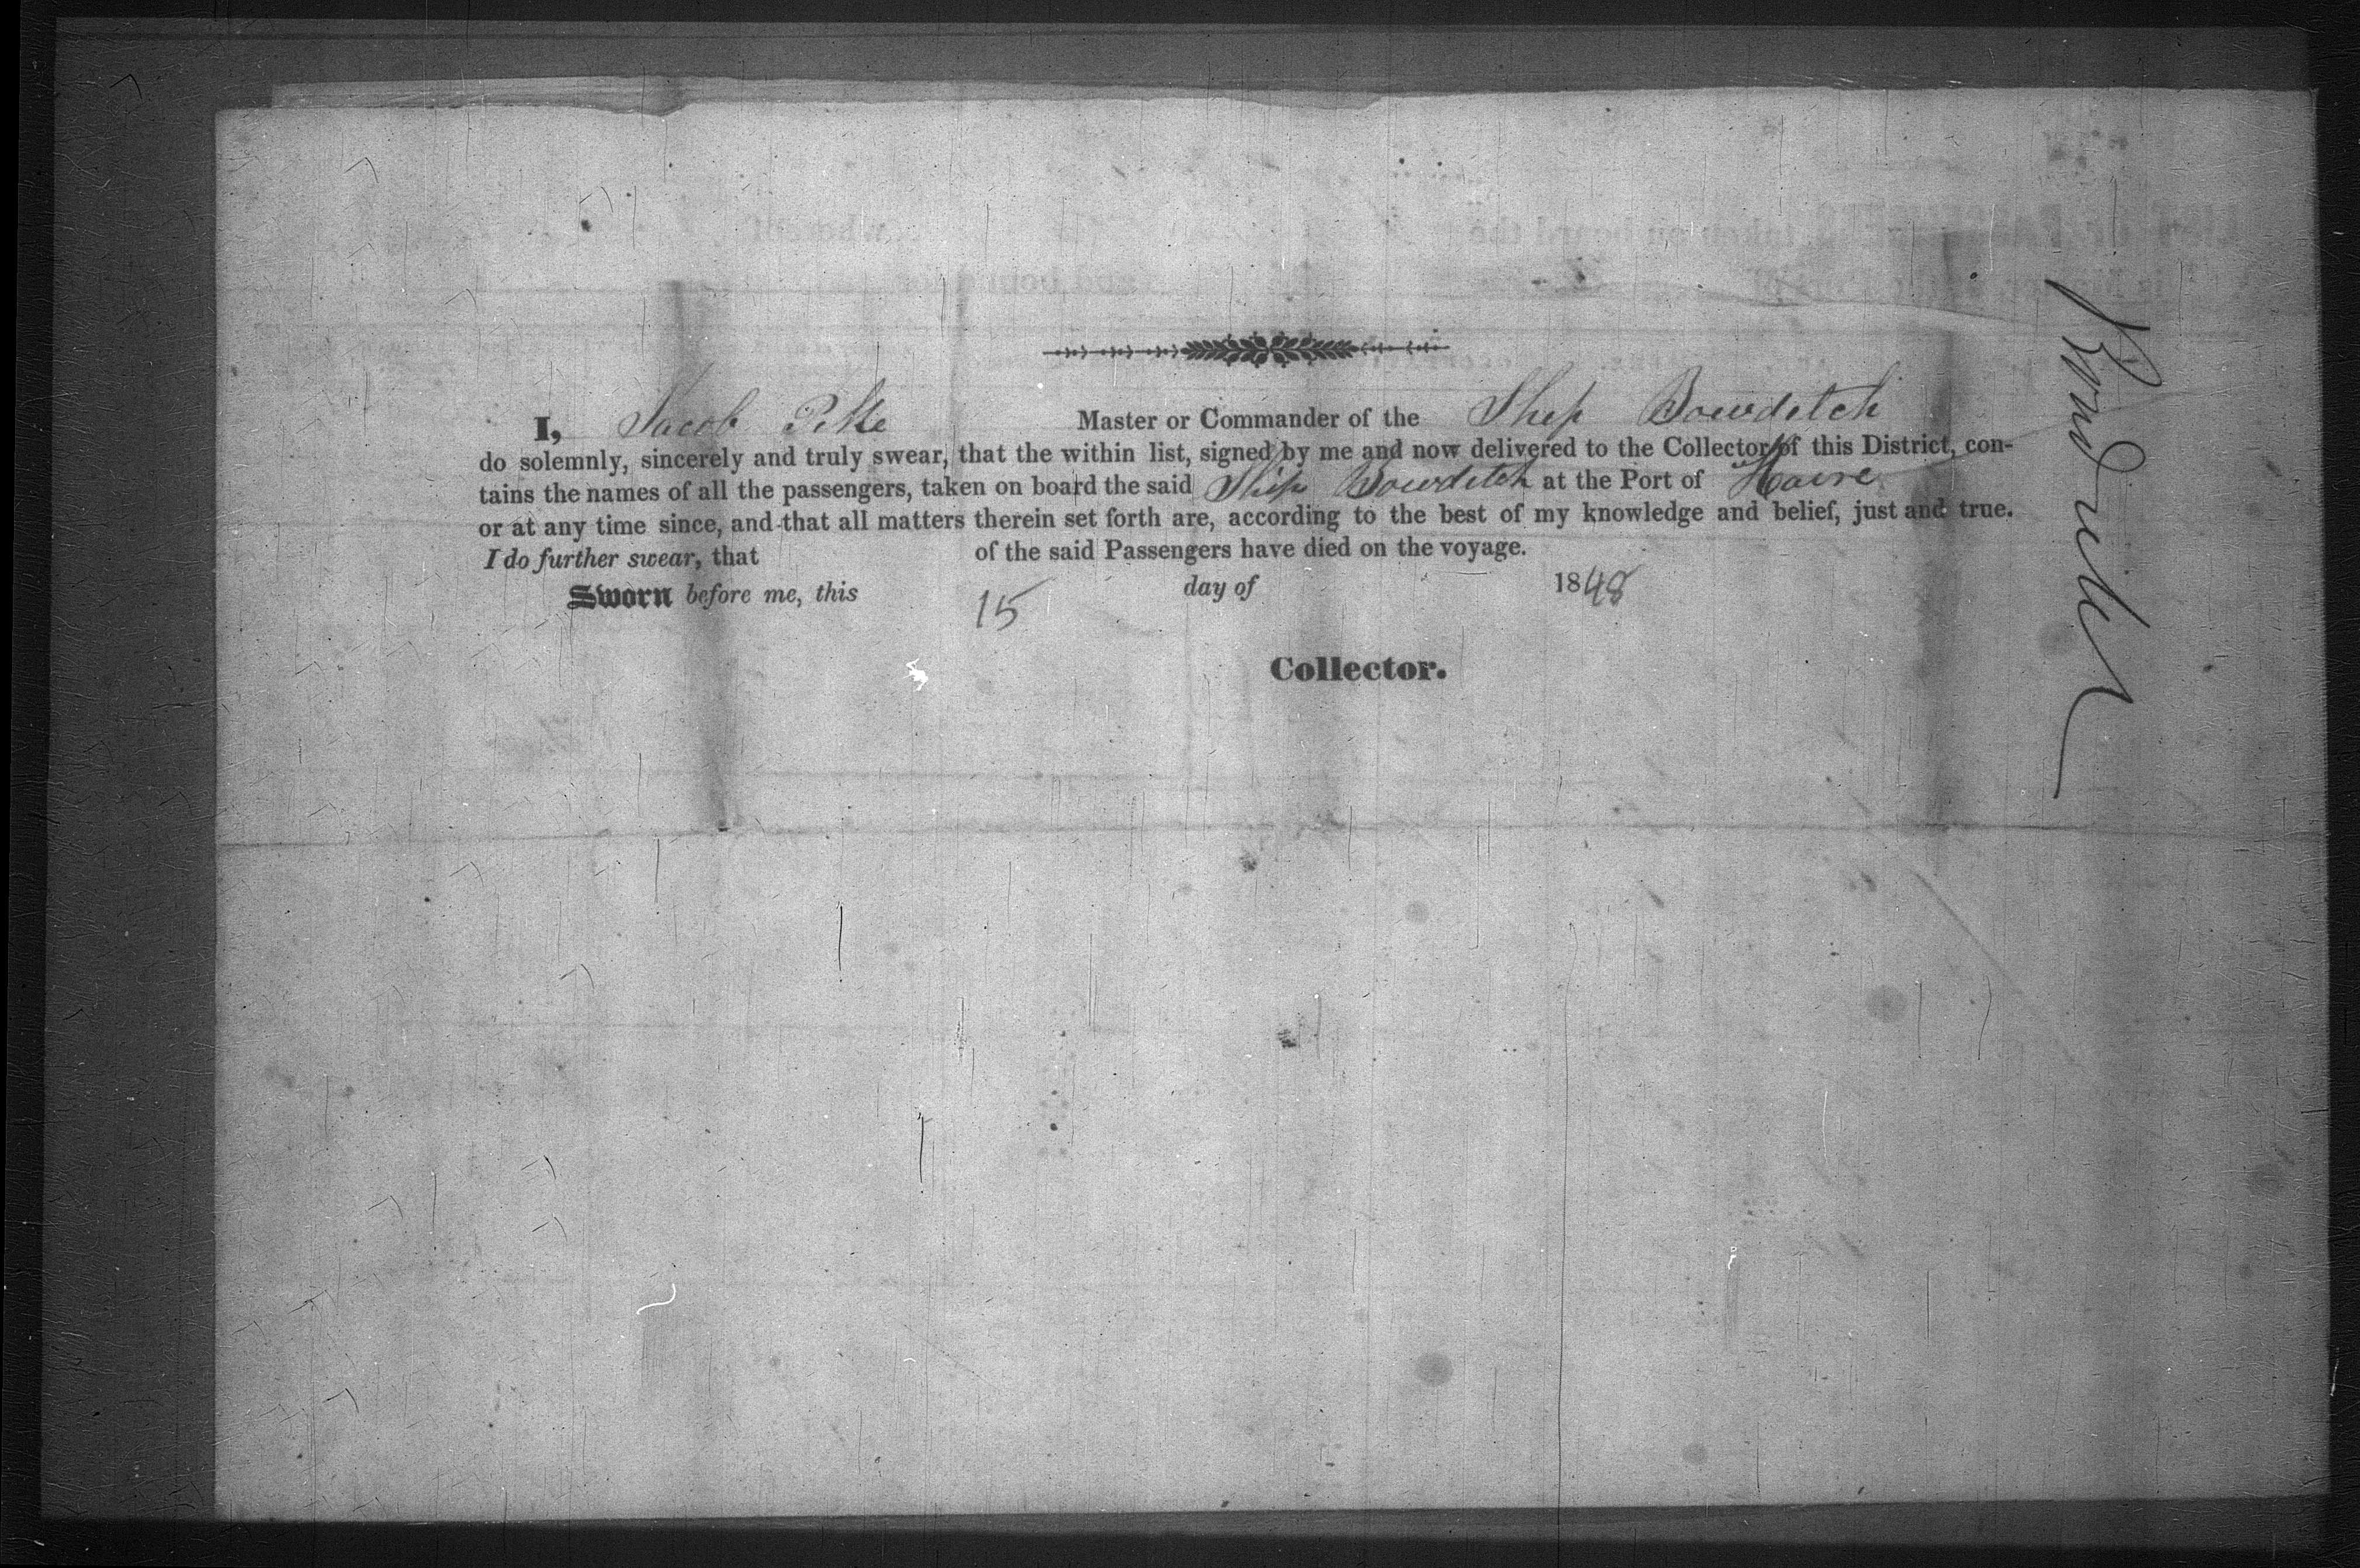 I, Jacob Pike Master or Commander of the Ship Bowditch
do solemnly, sincerely and truly swear, that the within list, signed by me and now delivered to the Collector of this District, con-
tains the names of all the passengers, taken on board the said Ship Bowditch at the Port of Havre
or at any time since, and that all matters therein set forth are, according to the best of my knowledge and belief, just and true.
I do further swear, that of the said Passengers have died on the voyage.
Sworn before me, this 15 day of 1848
Collector.